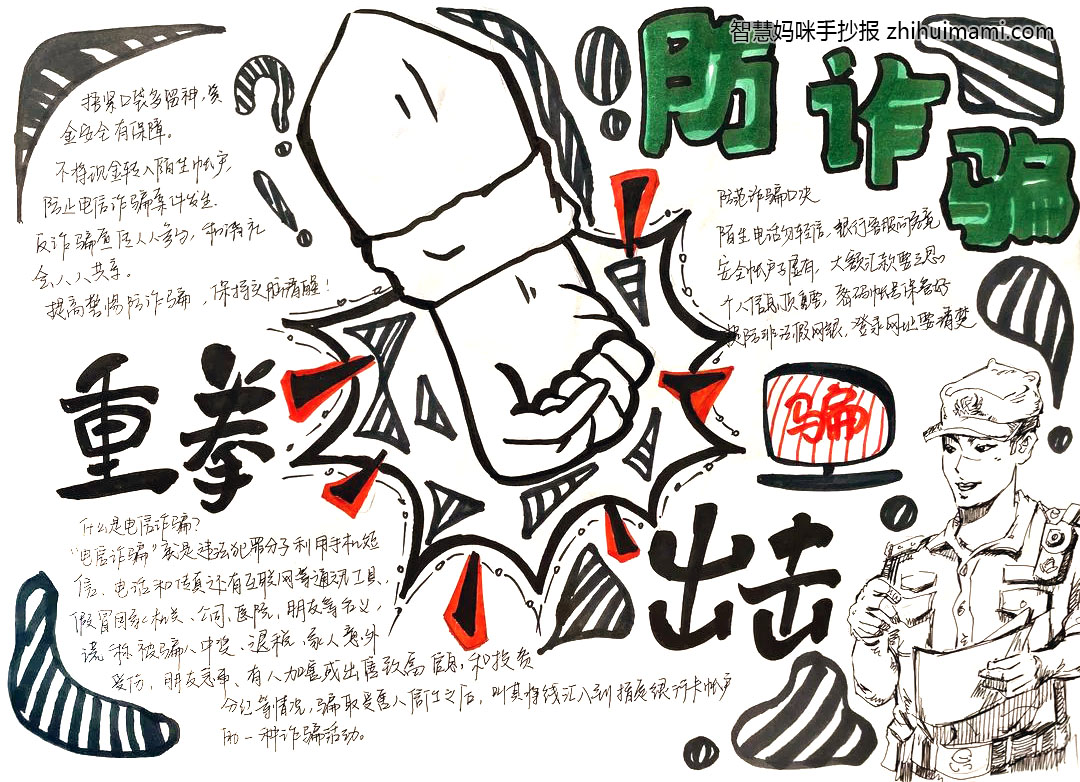 智慧妈咪手抄报 zhihuimami.com
防诈骗
捂紧口袋多留神,资
金安全有保障。
不将现金转入陌生帐户,
防止电信诈骗案件发生.
反诈骗责任人人参与,和谐社
会人人共享。
提高警惕防诈骗,保持头脑清醒!
防范诈骗口决
陌生电话勿轻信,银行客服问究竟
安全帐户子虚有,大额汇款要三思
个人信息顶重要,密码帐号保管好
提防非法假网银,登录网址要清楚
重拳
骗
出击
什么是电信诈骗?
“电信诈骗”就是违法犯罪分子利用手机短
信、电话和传真还有互联网等通讯工具、
假冒国家机关、公司、医院、朋友等名义,
谎称被骗人中奖、退税、家人意外
受伤、朋友急事、有人加害或出售致富信息,和投资
分红等情况,骗取受害人信任之后,叫其将钱汇入到指定银行卡帐户
的一种诈骗活动。